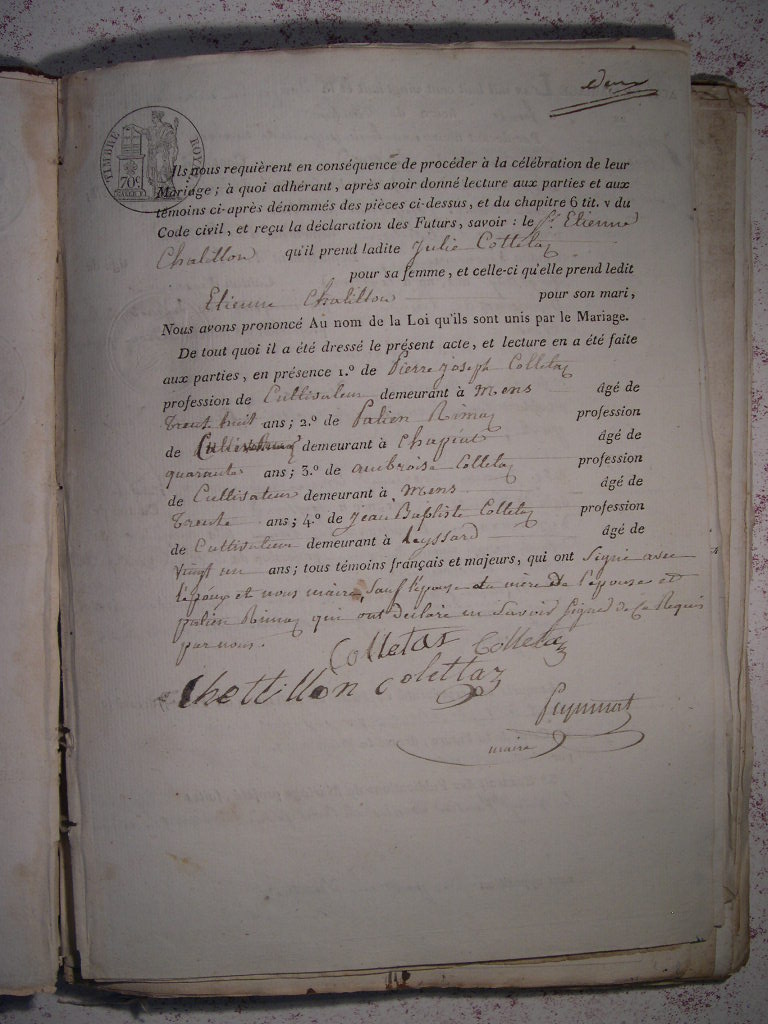 deux
TIMBRE ROYAL
70c
Ils nous requièrent en conséquence de procéder à la célébration de leur
Mariage ; à quoi adhérant, après avoir donné lecture aux parties et aux
témoins ci-après dénommés des pièces ci-dessus, et du chapitre 6 tit. v du
Code civil, et reçu la déclaration des Futurs, savoir : le Sr. Etienne
Chatillon qu'il prend ladite Julie Colletaz
pour sa femme, et celle-ci qu'elle prend ledit
Etienne Chatillon pour son mari,
Nous avons prononcé Au nom de la Loi qu'ils sont unis par le Mariage.
De tout quoi il a été dressé le présent acte, et lecture en a été faite
aux parties, en présence 1.º de Pierre joseph Colletaz
profession de Cultivateur demeurant à mens âgé de
trente huit ans ; 2.º de Palien Rimaz profession
de demeurant à Chapiat âgé de
quarante ans ; 3.º de ambroise Colletaz profession
de Cultivateur demeurant à mens âgé de
trente ans ; 4.º de jean Baptiste Colletaz profession
de Cultivateur demeurant à Leyssard âgé de
vingt un ans ; tous témoins français et majeurs, qui ont signé avec
l'époux et nous maire, sauf l'épouse la mère de l'épouse et
palien Rimaz qui ont declaré ne savoir signer de ce Requis
par nous.
Colletaz Colletaz
Chattillon Colettaz
maire